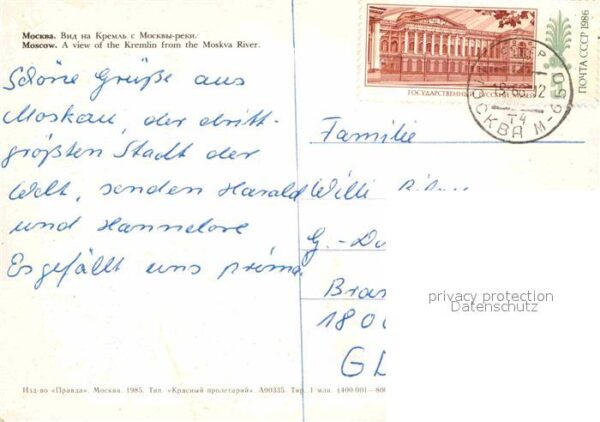 Москва. Вид на Кремль с Москвы-реки.
Moscow. A view of the Kremlin from the Moskva River.
Schöne Grüße aus
Moskau, der dritt-
größten Stadt der
Welt, senden Harald
und Hannelore
Es gefällt uns prima.
ПОЧТА СССР 1986
ГОСУДАРСТВЕННЫЙ РУССКИЙ
МОСКВА М-650
Familie
Willi
G.-
Bran
180
G
privacy protection
Datenschutz
Изд-во «Правда». Москва. 1985. Тип. «Красный пролетарий». А00335. Тир. 1 млн. (400 001—800